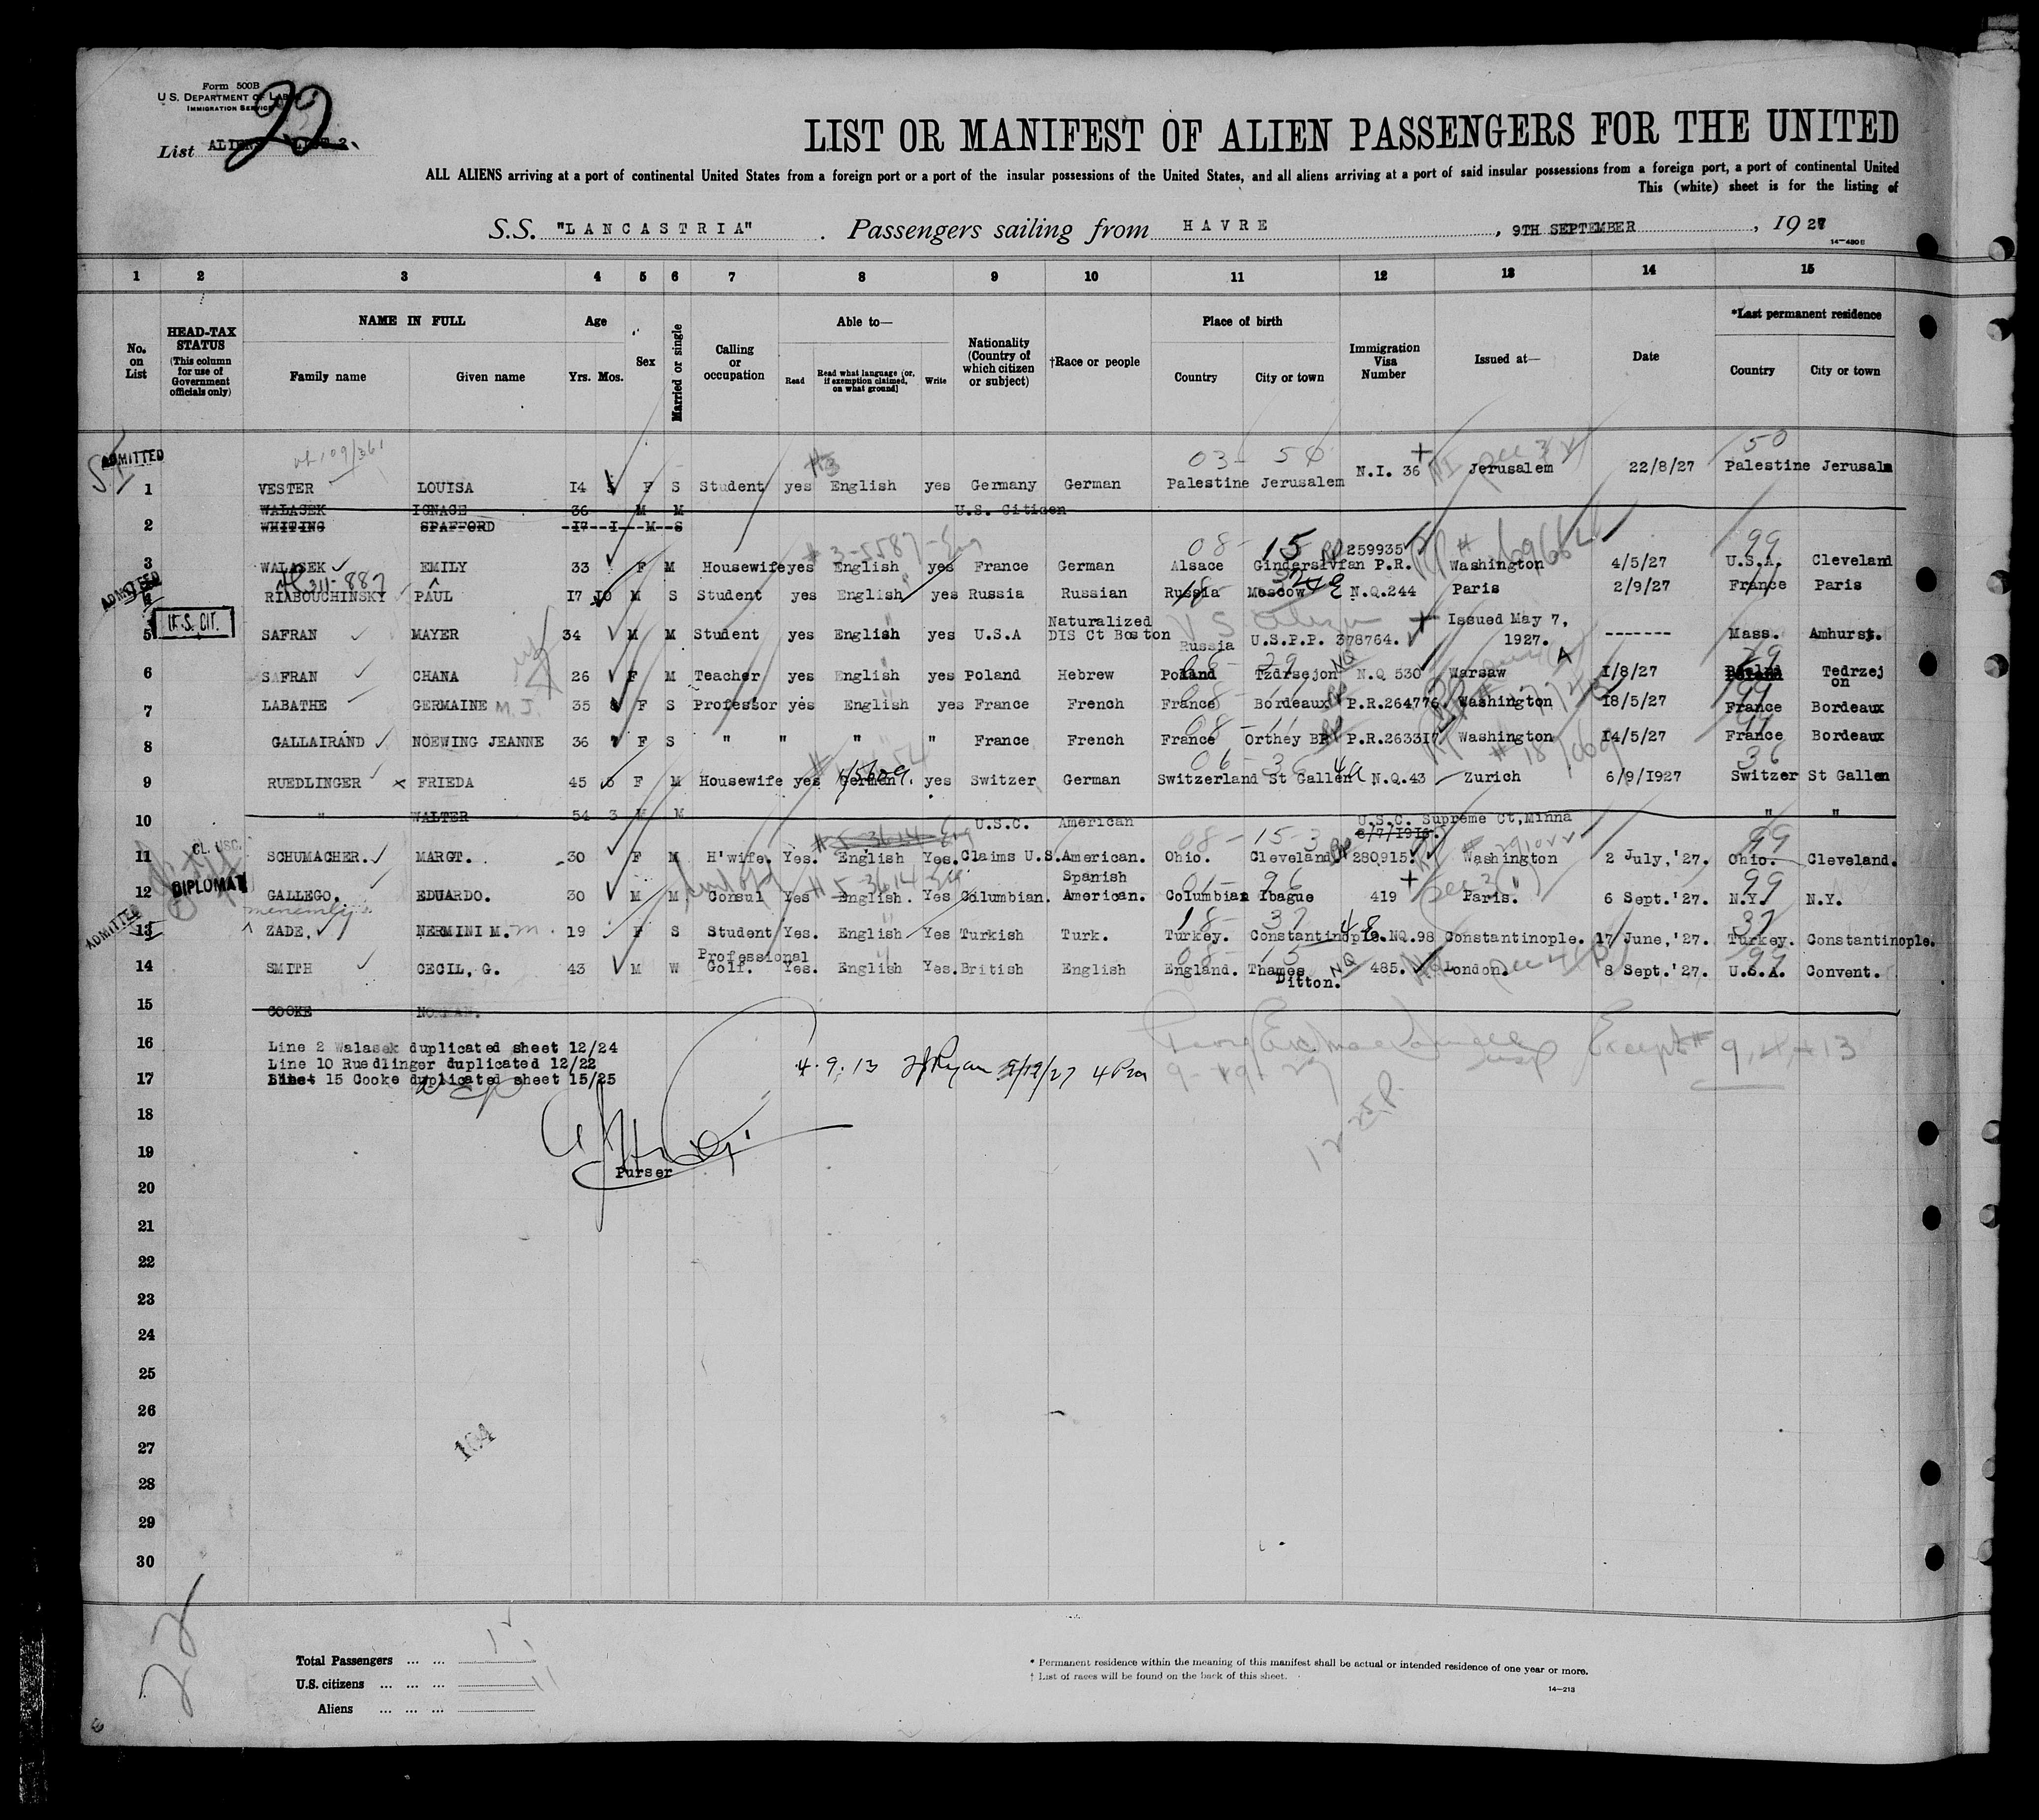 Form 500B
U.S. DEPARTMENT OF LABOR
IMMIGRATION SERVICE
22
List ALIENS
LIST OR MANIFEST OF ALIEN PASSENGERS FOR THE UNITED
ALL ALIENS arriving at a port of continental United States from a foreign port or a port of the insular possessions of the United States, and all aliens arriving at a port of said insular possessions from a foreign port, a port of continental United
This (white) sheet is for the listing of
S.S. "LANCASTRIA" . Passengers sailing from HAVRE , 9TH SEPTEMBER , 1927
14-480 B
1 2 3 4 5 6 7 8 9 10 11 12 13 14 15
No. on List
HEAD-TAX STATUS (This column for use of Government officials only)
NAME IN FULL
Family name Given name
Age
Yrs. Mos.
Sex
Married or single
Calling or occupation
Able to—
Read Read what language (or, if exemption claimed, on what ground) Write
Nationality (Country of which citizen or subject)
†Race or people
Place of birth
Country City or town
Immigration Visa Number
Issued at—
Date
*Last permanent residence
Country City or town
ADMITTED 03- 50 50
1 VESTER LOUISA 14 F S Student yes English yes Germany German Palestine Jerusalem N.I. 36 Jerusalem 22/8/27 Palestine Jerusalm
WALASEK IGNACE 36 M M U.S. Citizen
2 WHITING SPAFFORD -17--I---M--S
#3-5587-Eng 08- 15 99
3 WALASEK EMILY 33 F M Housewife yes English yes France German Alsace Gindersivfan P.R. 259935 Washington 4/5/27 U.S.A. Cleveland
ADMITTED 311-887
4 RIABOUCHINSKY PAUL 17 10 M S Student yes English yes Russia Russian Russia Moscow N.Q.244 Paris 2/9/27 France Paris
U.S. CIT.
5 SAFRAN MAYER 34 M M Student yes English yes U.S.A Naturalized DIS Ct Boston Russia U.S.P.P. 378764. Issued May 7, 1927. ------- Mass. Amhurst.
6 SAFRAN CHANA 26 F M Teacher yes English yes Poland Hebrew Poland Tzdrsejon N.Q 530 Warsaw 1/8/27 Tedrzej on
7 LABATHE GERMAINE M.J. 35 F S Professor yes English yes France French France Bordeaux P.R.264776 Washington 18/5/27 France Bordeaux
8 GALLAIRAND NOEWING JEANNE 36 F S " " " " France French France Orthey BP P.R.263317 Washington 14/5/27 France Bordeaux
9 RUEDLINGER x FRIEDA 45 5 F M Housewife yes German. yes Switzer German Switzerland St Gallen N.Q.43 Zurich 6/9/1927 Switzer St Gallen
10 " WALTER 54 3 M M U.S.C. American U.S.C. Supreme Ct,Minna 6/7/1916. " "
CL. USC.
11 SCHUMACHER. MARGT. 30 F M H'wife. Yes. English Yes. Claims U.S. American. Ohio. Cleveland 280915. Washington 2 July,'27. Ohio. Cleveland.
DIPLOMAT
12 GALLEGO. EDUARDO. 30 M M Consul Yes English. Yes Columbian. Spanish American. Columbian Ibague 419 Paris. 6 Sept.'27. N.Y. N.Y.
ADMITTED
13 ZADE. NERMINI M. 19 F S Student Yes. English Yes Turkish Turk. Turkey. Constantinople. NQ.98 Constantinople. 17 June,'27. Turkey. Constantinople.
14 SMITH CECIL, G. 43 M W Professional Golf. Yes. English Yes. British English England. Thames Ditton. NQ 485. London. 8 Sept.'27. U.S.A. Convent.
15 COOKE NORMAN.
16 Line 2 Walasek duplicated sheet 12/24
Line 10 Ruedlinger duplicated 12/22
17 15 Cooke duplicated sheet 15/25
4. 9. 13 Ryan 9/19/27
Except # 9, 4, + 13
18
19
Purser
20
21
22
23
24
25
26
104
27
28
29
30
22
Total Passengers ... ...
U.S. citizens ... ... ...
Aliens ... ... ...
* Permanent residence within the meaning of this manifest shall be actual or intended residence of one year or more.
† List of races will be found on the back of this sheet.
14—213